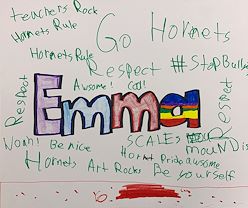 teachers Rock
Hornets Rule
Go Hornets
Hornets Rule
Respect
#StopBull
Awsome! Cool!
Respect
Emma
Respect
Woah! Be nice
SCALES
mound is
Hornet Pride awsome
Hornets Art Rocks
Be yourself